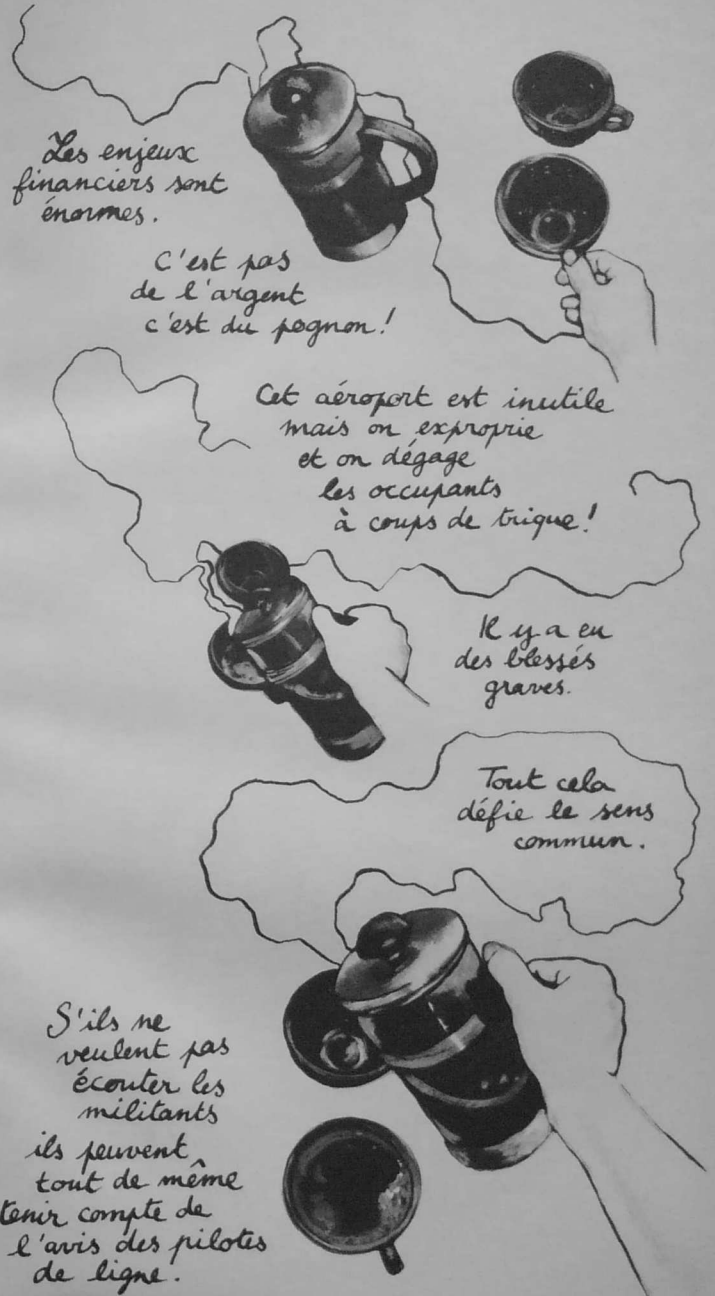 Les enjeux
financiers sont
énormes.
C'est pas
de l'argent
c'est du pognon!
Cet aéroport est inutile
mais on exproprie
et on dégage
les occupants
à coups de trique!
Il y a eu
des blessés
graves.
Tout cela
défie le sens
commun.
S'ils ne
veulent pas
écouter les
militants
ils peuvent
tout de même
tenir compte de
l'avis des pilotes
de ligne.